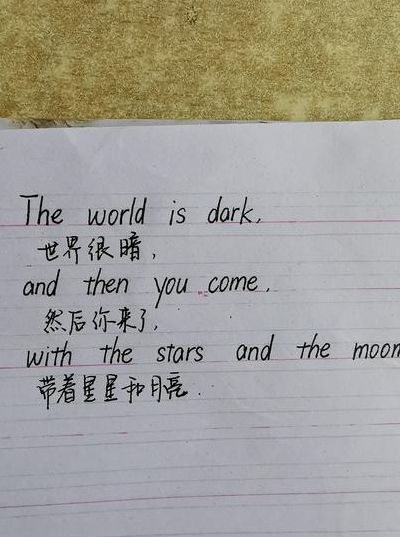 The world is dark,
世界很暗，
and then you come,
然后你来了，
with the stars and the moon
带着星星和月亮.